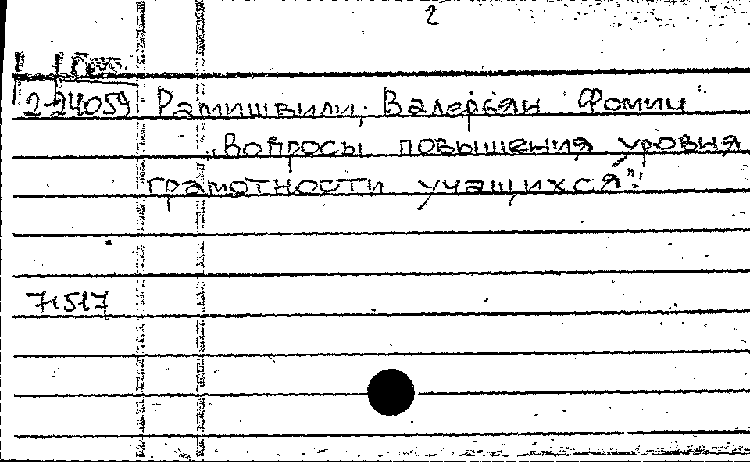 2
2-24059 Рамишвили, Валериан Фомич
„Вопросы повышения уровня
грамотности учащихся".
71517